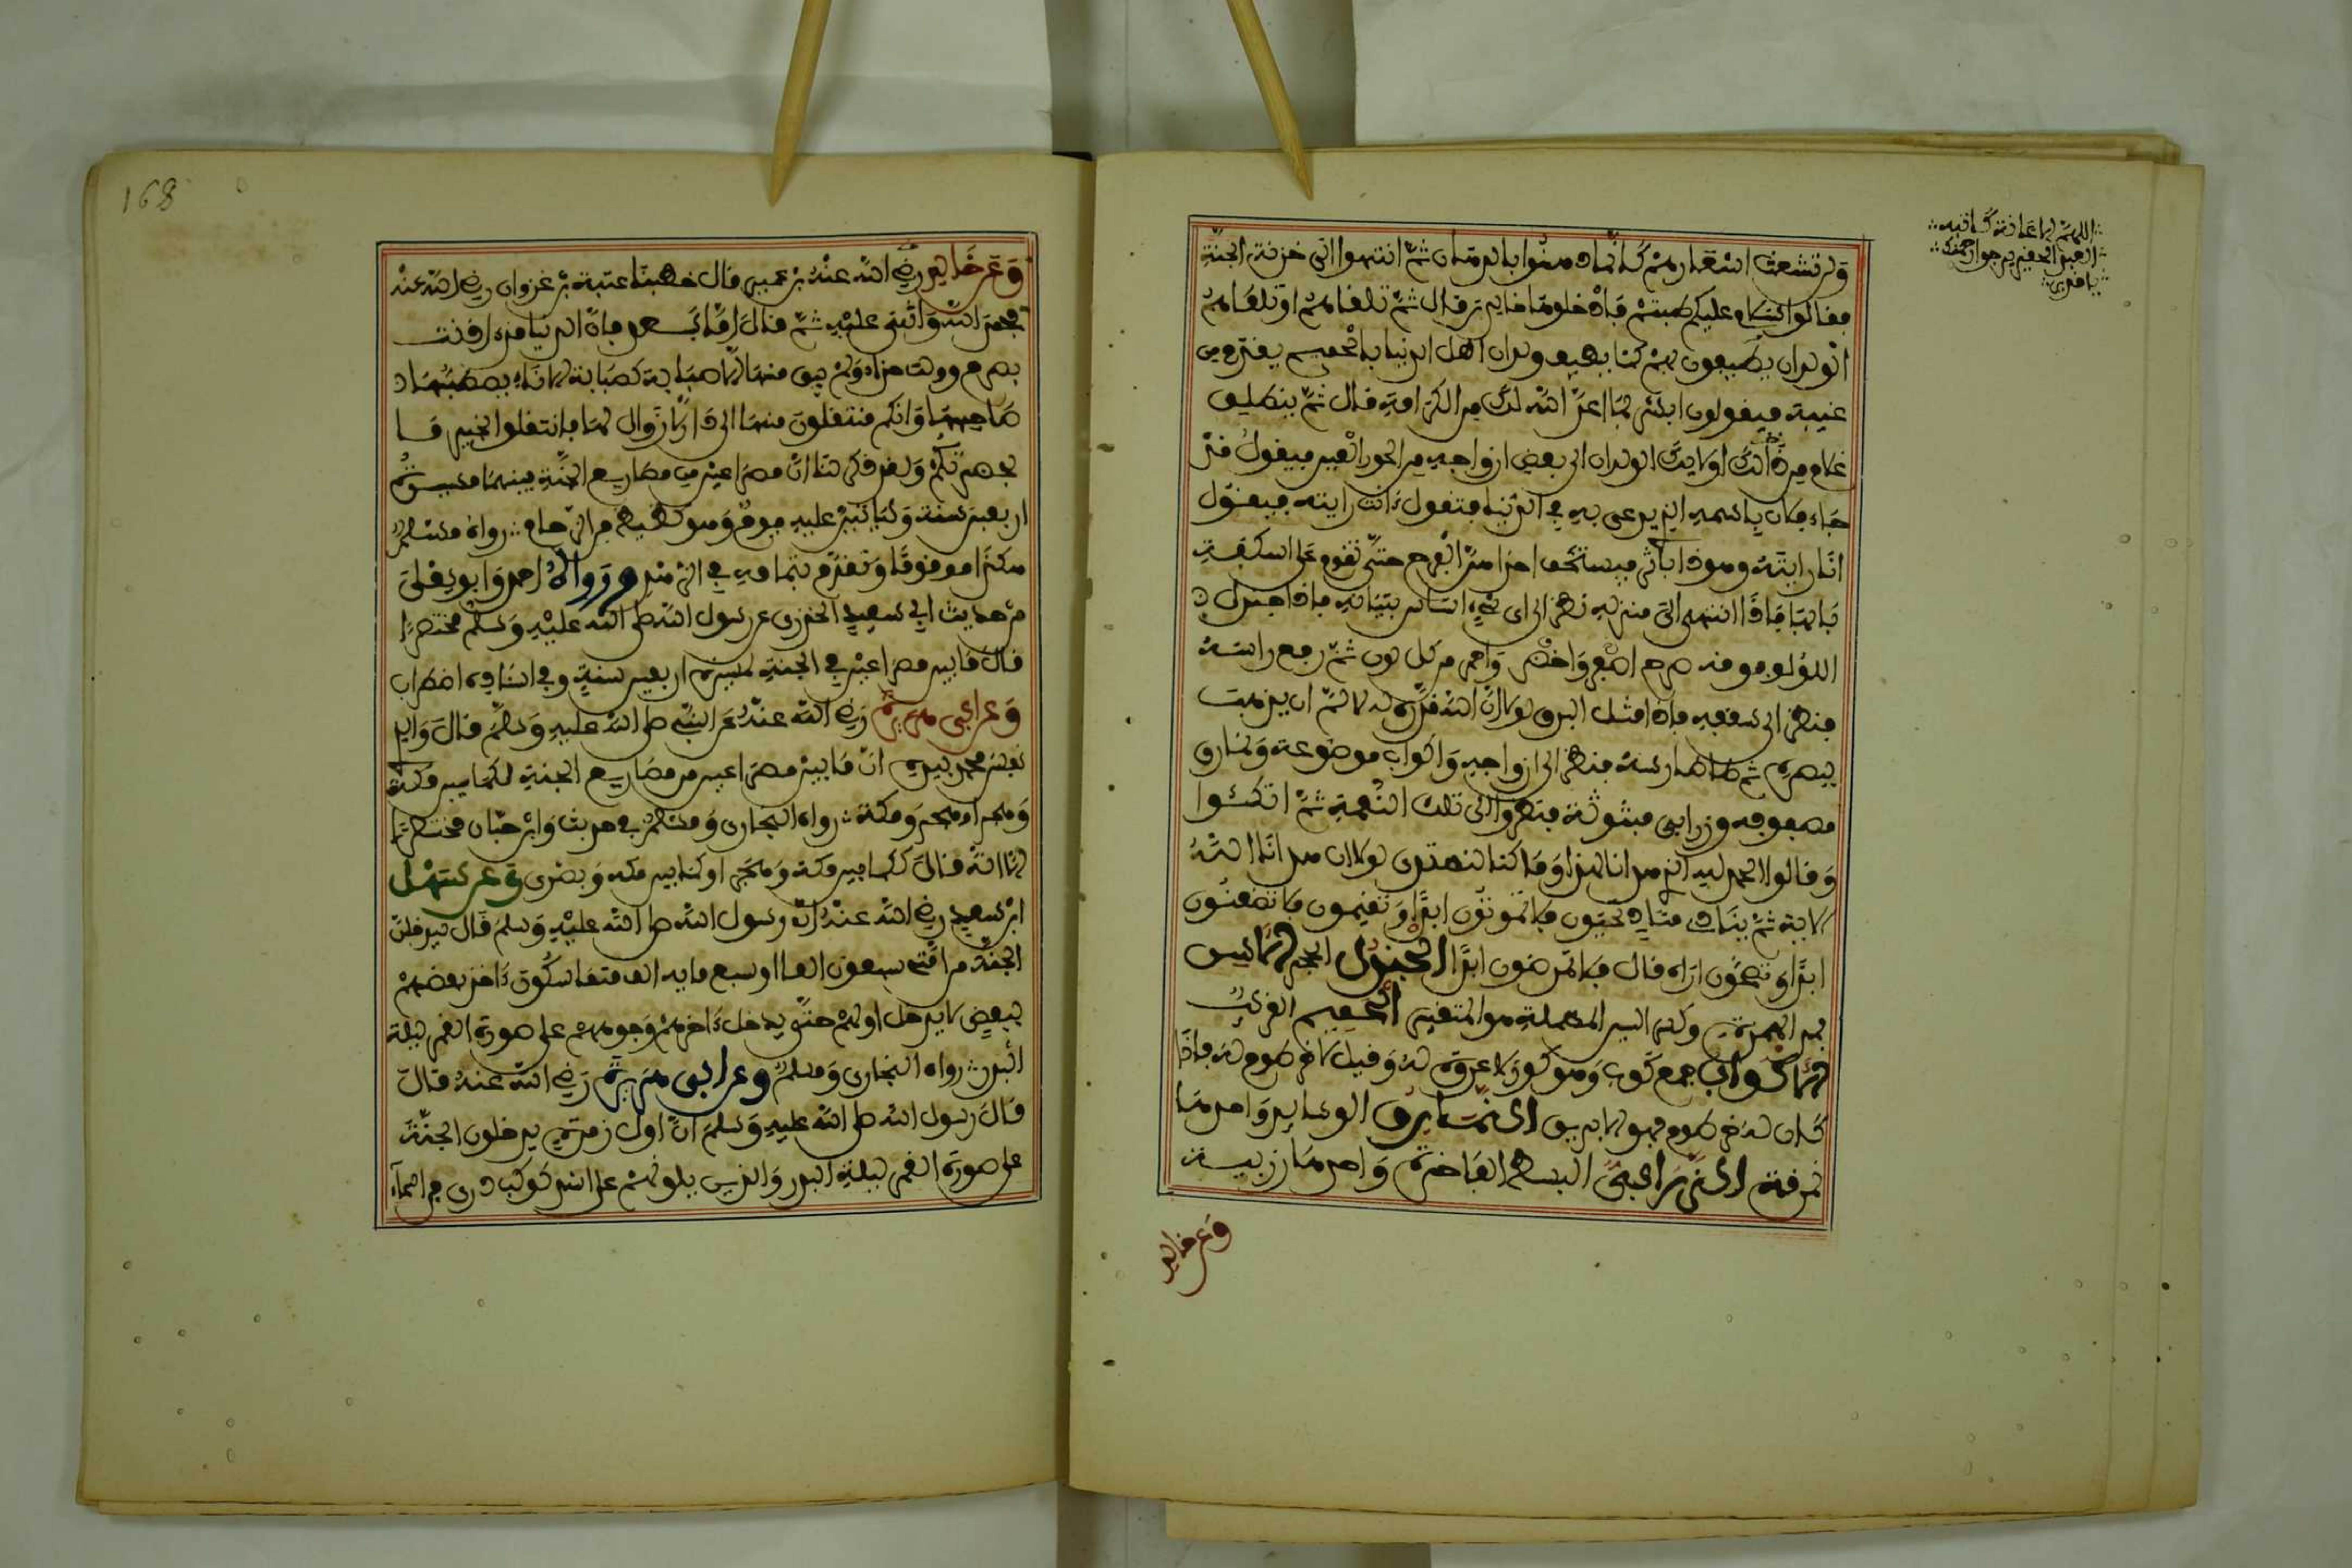 ولا تشعث اشعارهم كانما دهنوا بالدهان ثم انتهوا الى خزنة الجنة
فقالوا سلام عليكم طبتم فادخلوها خالدين قال ثم تلقاهم او تلقاهم
الولدان يطيفون بهم كما يطيف ولدان اهل الدنيا بالحميم يقدم من
غيبته فيقولون ابشر بما اعد الله لك من الكرامة قال ثم ينطلق
غلام من اولئك الولدان الى بعض ازواجه من الحور العين فيقول قد
جاء فلان باسمه الذي يدعى به في الدنيا فتقول ءانت رايته فيقول
انا رايته وهو ذا باثري فيستخف احداهن الفرح حتى تقوم على اسكفة
بابها فاذا انتهى الى منزله نظر الى اي شيء اساس بنيانه فاذا جندل
اللؤلؤ فوقه صرح اصفر واخضر واحمر من كل لون ثم رفع راسه
فنظر الى سقفه فاذا مثل البرق لولا ان الله قدره له لالم ان يذهب
ببصره ثم طاطا راسه فنظر الى ازواجه واكواب موضوعة ونمارق
مصفوفة وزرابي مبثوثة فنظروا الى تلك النعمة ثم اتكئوا
وقالوا الحمد لله الذي هدانا لهذا وما كنا لنهتدي لولا ان هدانا الله
الاية ثم ينادي مناد تحيون فلا تموتون ابدا وتقيمون فلا تظعنون
ابدا وتصحون اراه قال فلا تمرضون ابدا الجندل الحجر الاسيس
بمد الهمزة وكسر السين المهملة هو المتغير الحميم القريب
الاكواب جمع كوب وهو كوز لا عروة له وقيل لا خرطوم له فاذا
كان له خرطوم فهو الابريق النمارق الوسايد واحدها
نمرقة الزرابي البسط الفاخرة واحدها زربية
وعن خالد
اللهم
العبد الفقير يرجو رحمتك
168
وعن خالد رضي الله عنه بن عمير قال خطبنا عتبة بن غزوان رضي الله عنه
فحمد الله واثنى عليه ثم قال اما بعد فان الدنيا قد اذنت
بصرم وولت حذاء ولم يبق منها الا صبابة كصبابة الاناء يصطبها
صاحبها وانكم منتقلون منها الى دار لا زوال لها فانتقلوا بخير ما
بحضرتكم ولقد ذكر لنا ان مصراعين من مصاريع الجنة بينهما مسيرة
اربعين سنة ولياتين عليه يوم وهو كظيظ من الزحام رواه مسلم
هكذا موقوفا وتقدم بتمامه في الزهد ورواه احمد وابو يعلى
من حديث ابي سعيد الخدري عن رسول الله صلى الله عليه وسلم مختصرا
قال ما بين مصراعين في الجنة لمسيرة اربعين سنة وفي اسناده اضطراب
وعن ابي هريرة رضي الله عنه عن النبي صلى الله عليه وسلم قال والذي
نفس محمد بيده ان ما بين مصراعين من مصاريع الجنة لكما بين مكة
وهجر او هجر ومكة رواه البخاري ومسلم في حديث وابن حبان مختصرا
الا انه قال لكما بين مكة وهجر او كما بين مكة وبصرى وعن سهل
ابن سعد رضي الله عنه ان رسول الله صلى الله عليه وسلم قال ليدخلن
الجنة من امتي سبعون الفا او سبع ماية الف متماسكون ءاخذ بعضهم
ببعض لا يدخل اولهم حتى يدخل ءاخرهم وجوههم على صورة القمر ليلة
البدر رواه البخاري ومسلم وعن ابي هريرة رضي الله عنه قال
قال رسول الله صلى الله عليه وسلم ان اول زمرة يدخلون الجنة
على صورة القمر ليلة البدر والذين يلونهم على اشد كوكب دري في السماء